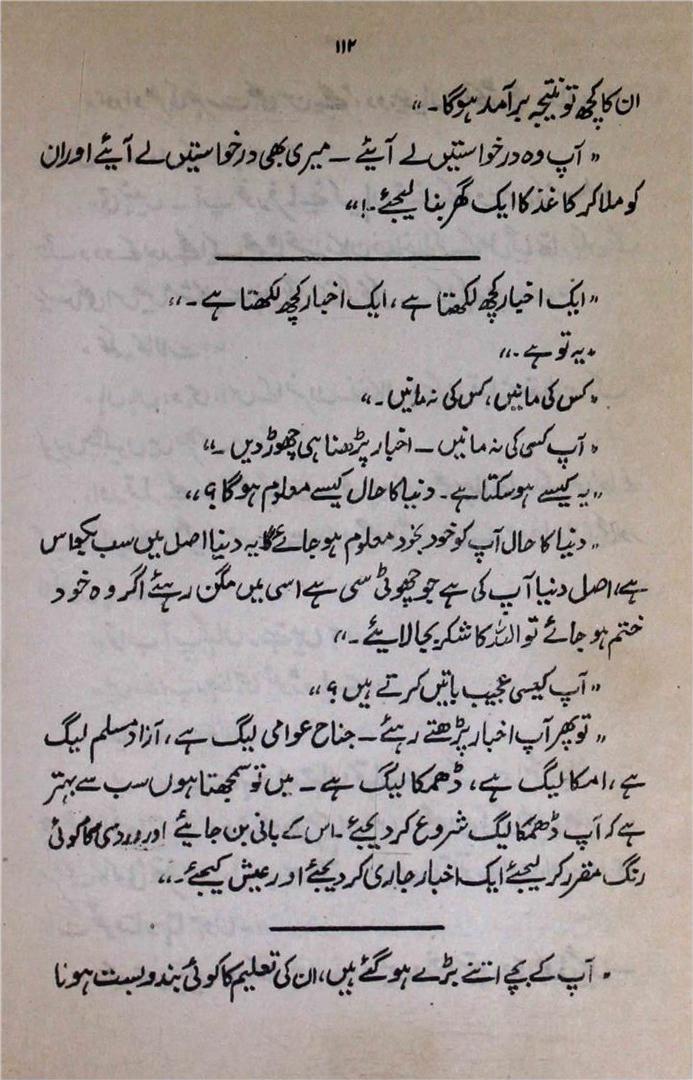 ۱۱۲
ان کا کچھ تو نتیجہ برآمد ہوگا۔"
"آپ وہ درخواستیں لے آیئے ـ میری بھی درخواستیں لے آیئے اور ان
کو ملا کر کاغذ کا ایک گھر بنا لیجئے۔!"
"ایک اخبار کچھ لکھتا ہے، ایک اخبار کچھ لکھتا ہے۔"
"یہ تو ہے۔"
"کس کی مانیں، کس کی نہ مانیں۔"
"آپ کسی کی نہ مانیں ـ اخبار پڑھنا ہی چھوڑ دیں۔"
"یہ کیسے ہو سکتا ہے۔ دنیا کا حال کیسے معلوم ہوگا؟"
"دنیا کا حال آپ کو خود بخود معلوم ہو جائے گا یہ دنیا اصل میں سب بکواس
ہے، اصل دنیا آپ کی ہے جو چھوٹی سی ہے اسی میں مگن رہئے اگر وہ خود
ختم ہو جائے تو اللہ کا شکر بجا لایئے۔"
"آپ کیسی عجیب باتیں کرتے ہیں؟"
"تو پھر آپ اخبار پڑھتے رہئے ـ جناح عوامی لیگ ہے، آزاد مسلم لیگ
ہے، امکا لیگ ہے، ڈھمکا لیگ ہے ـ میں تو سمجھتا ہوں سب سے بہتر
ہے کہ آپ ڈھمکا لیگ شروع کر دیجئے۔ اس کے بانی بن جایئے اور وردی کا کوئی
رنگ مقرر کر لیجئے ایک اخبار جاری کر دیجئے اور عیش کیجئے۔"
"آپ کے بچے اتنے بڑے ہو گئے ہیں، ان کی تعلیم کا کوئی بندوبست ہونا